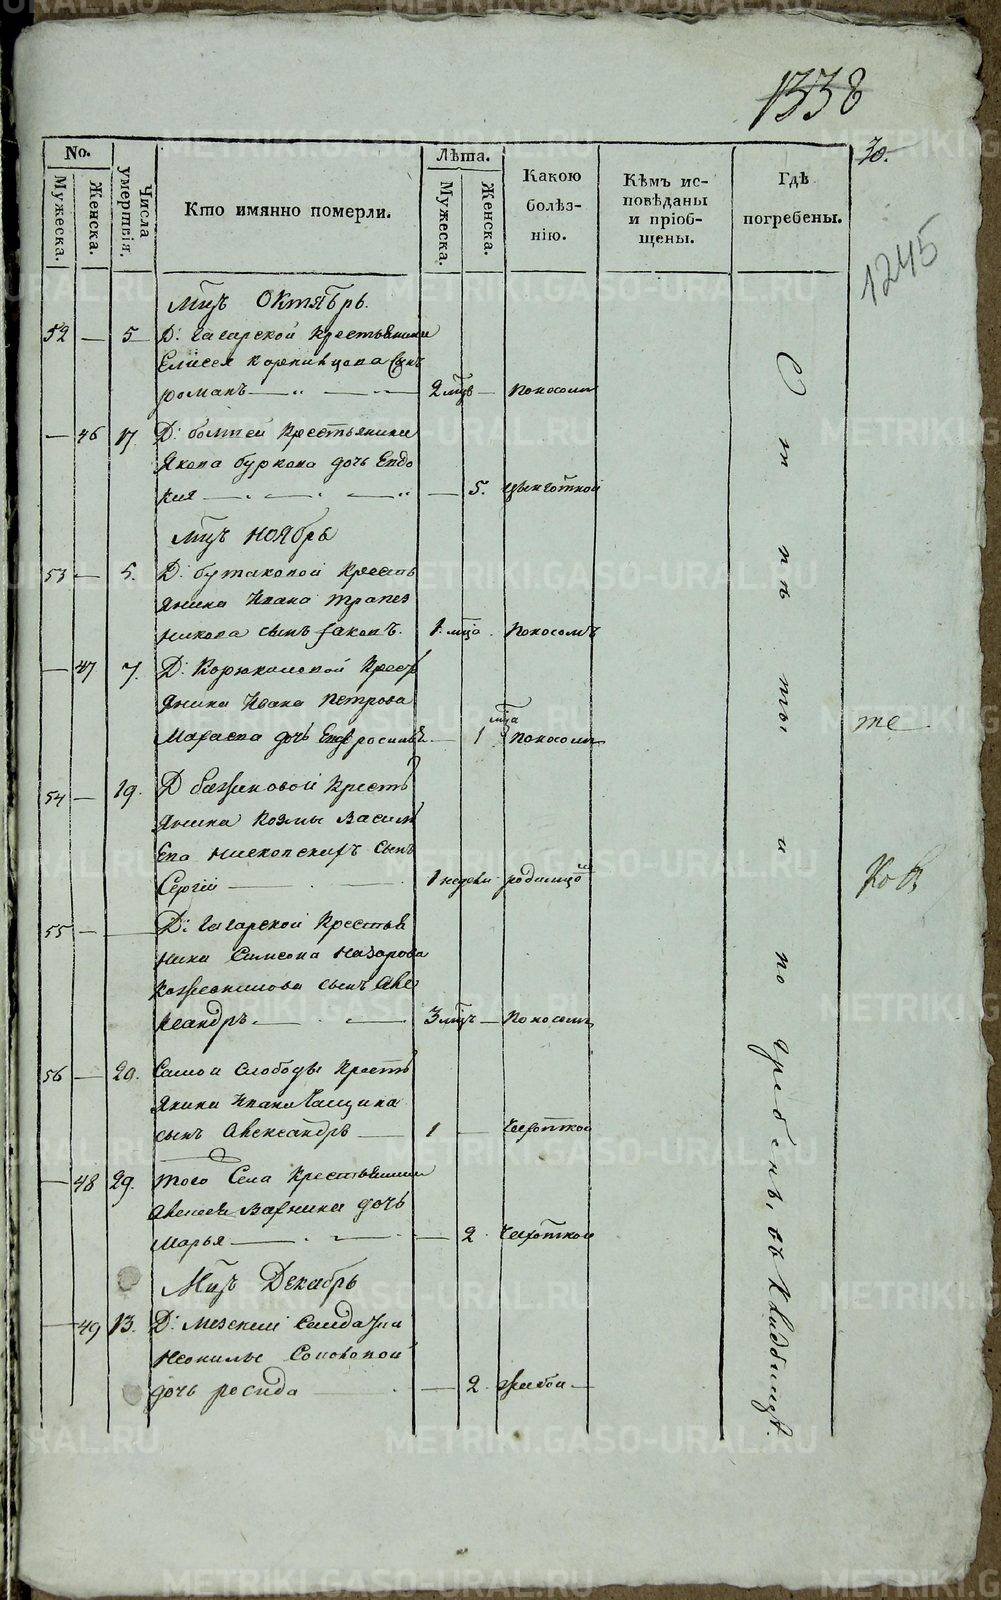 1338
30.
1245
No.
Мужеска.
Женска.
Числа умертвія.
Кто имянно померли.
Лѣта.
Мужеска.
Женска.
Какою болѣз-
нію.
Кѣмъ ис-
повѣданы
и пріоб-
щены.
Гдѣ
погребены.
Мцъ Октябрь.
52 — 5 Д: Гагарской Крестьянина
Елисея сынъ
романъ — 2 мцъ — Покосомъ
— 46 17. Д: Крестьянина
Якова буркова дочь Евдо
кия — 5. цынготной
Мцъ Ноябрь
53 — 5. Д: бутаковой Кресть
янина Ивана Трапез
никова сынъ Iаковъ. 1. мца. Покосомъ
— 47 7. Д: Корюкаловой Кресть
янина Ивана Петрова
дочь Ефросинья — 1 мца Покосомъ
54 — 19. Д баженовой Кресть
янина Козмы Василь
ева сынъ
Сергій — 1 недели родимцо
55 — Д: Гагарской Крестья
нина Самсона Назарова
Кожевникова сынъ Але
ксандръ — 3 мцъ — Покосомъ
56 — 20. Самой Слободы Кресть
янина Ивана
сынъ Александръ — 1 — Чахоткой
— 48 29. того Села Крестьянина
Алексея дочь
Марья — 2. Чахоткой
Мцъ Декабрь
— 49 13. Д: Солдатки
Неонилы Соповой
дочь — 2. жабой —
Отпеты и погребены, въ Кладбищѣ.
те
Ков.
METRIKI.GASO-URAL.RU